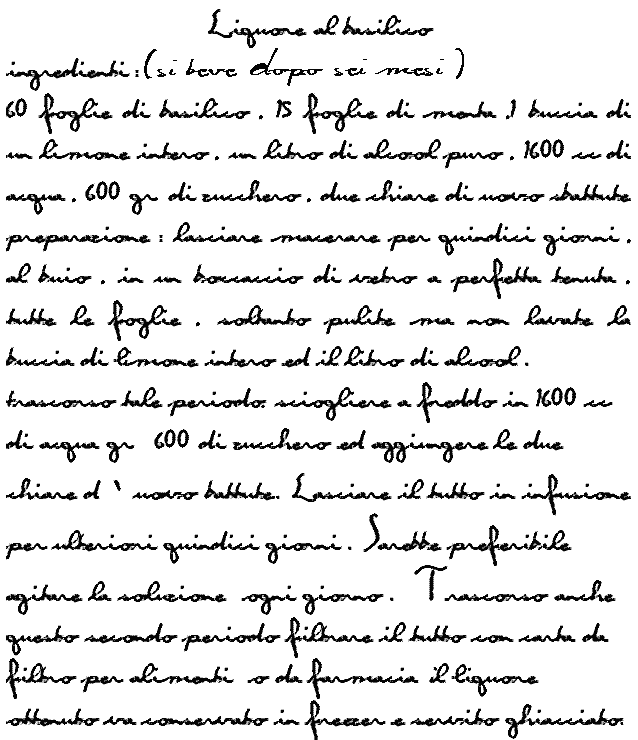 Liquore al basilico
ingredienti: (si beve dopo sei mesi)
60 foglie di basilico. 15 foglie di menta .1 buccia di
un limone intero. un litro di alcool puro. 1600 cc di
acqua. 600 gr di zucchero. due chiare di uovo sbattute
preparazione: lasciare macerare per quindici giorni.
al buio. in un boccaccio di vetro a perfetta tenuta.
tutte le foglie. soltanto pulite ma non lavate la
buccia di limone intero ed il litro di alcool.
trascorso tale periodo. sciogliere a freddo in 1600 cc
di acqua gr 600 di zucchero ed aggiungere le due
chiare d ' uovo battute. Lasciare il tutto in infusione
per ulteriori quindici giorni. Sarebbe preferibile
agitare la soluzione ogni giorno. Trascorso anche
questo secondo periodo filtrare il tutto con carta da
filtro per alimenti o da farmacia il liquore
ottenuto va conservato in freezer e servito ghiacciato.